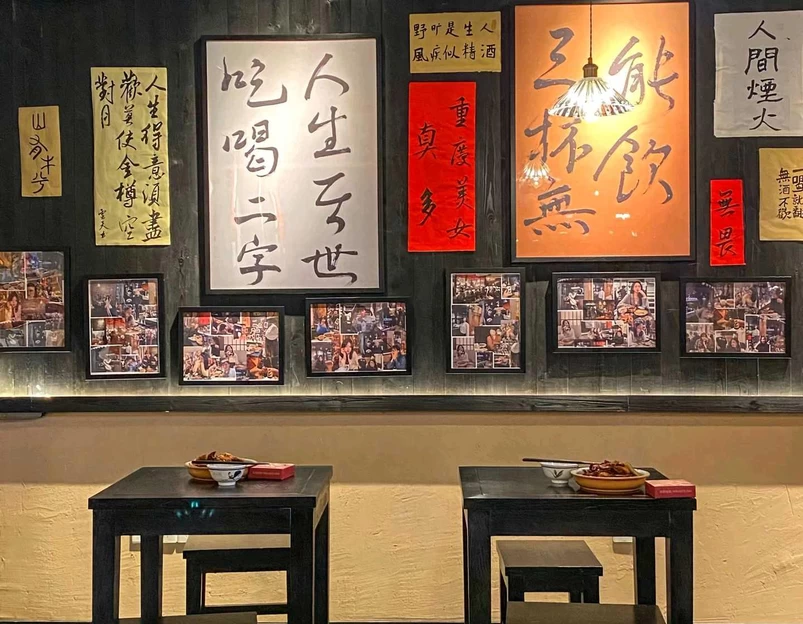 山有木兮
人生得意須盡
歡莫使金樽空
對月
人生在世
吃喝二字
人生是旷野
酒精似疾風
重慶美女
真多
能飲
三杯無
人間煙火
無畏
無酒不歡